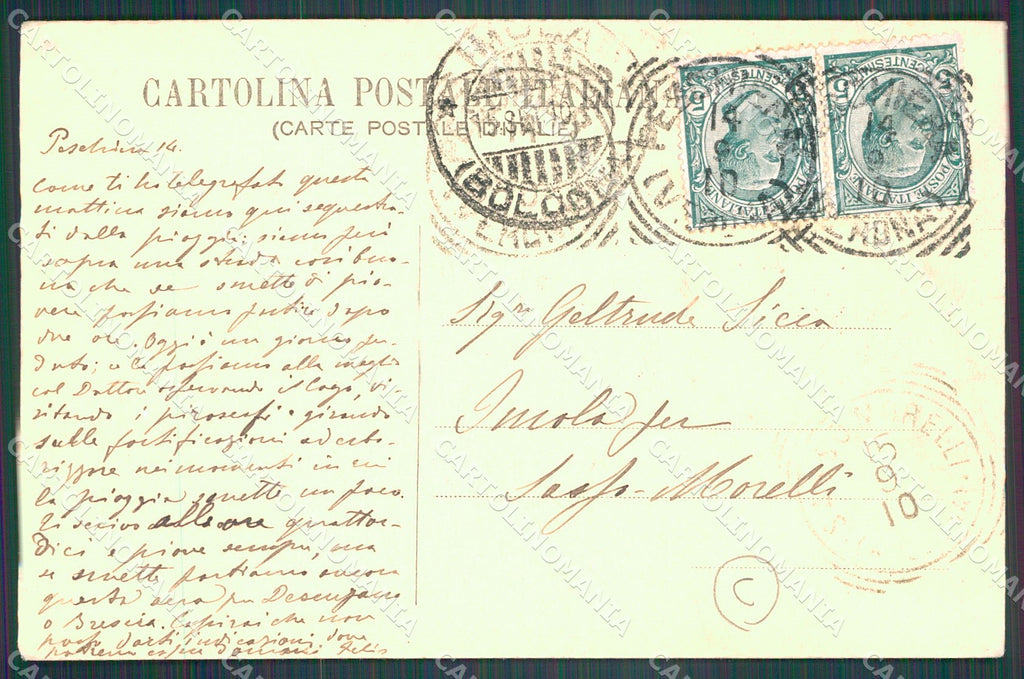 CARTOLINA POSTALE ITALIANA
(CARTE POSTALE D'ITALIE)
IMOLA
(BOLOGNA)
5 CENTESIMI 5
POSTE ITALIANE
5 CENTESIMI 5
POSTE ITALIANE
Peschiera 14.
Come ti ho telegrafato questa
mattina siamo qui sequestra-
ti dalla pioggia; siamo però
sopra una strada così buo-
na che se smette di pio-
vere possiamo partire dopo
due ore. Oggi è un giorno per-
duto; e lo passiamo alla meglio
col Dottore osservando il lago, vi-
sitando i piroscafi e girando
sulle fortificazioni
nei momenti in cui
la pioggia smette un poco.
Ti scrivo alle ore quattor-
dici e piove sempre, ma
se smette partiamo ancora
questa sera per Desenzano
o Brescia. Capirai che non
posso darti indicazioni dove
potremo essere domani
Sigra Geltrude Sicca
Imola per
Sasso-Morelli
RELLI
10
C
CARTOLINOMANIA